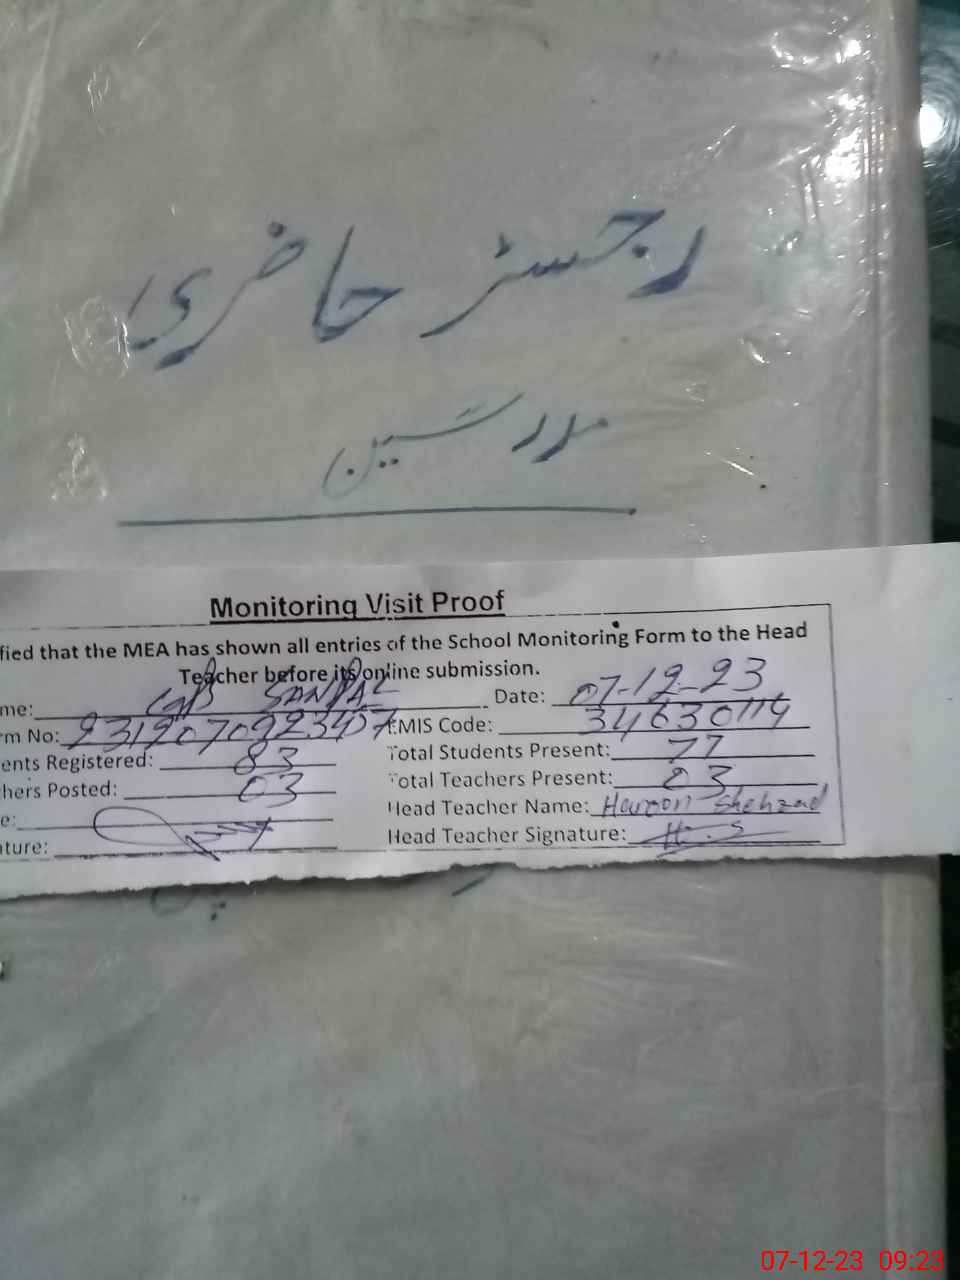 رجسٹر حاضری
مدرسین
Monitoring Visit Proof
fied that the MEA has shown all entries of the School Monitoring Form to the Head
Teacher before its online submission.
me: GPS SANPAL Date: 07-12-23
rm No: 2312070923457 EMIS Code: 34630114
ents Registered: 83 Total Students Present: 77
hers Posted: 03 Total Teachers Present: 03
e: Head Teacher Name: Haroon Shehzad
ture: Head Teacher Signature: H.S
07-12-23 09:23